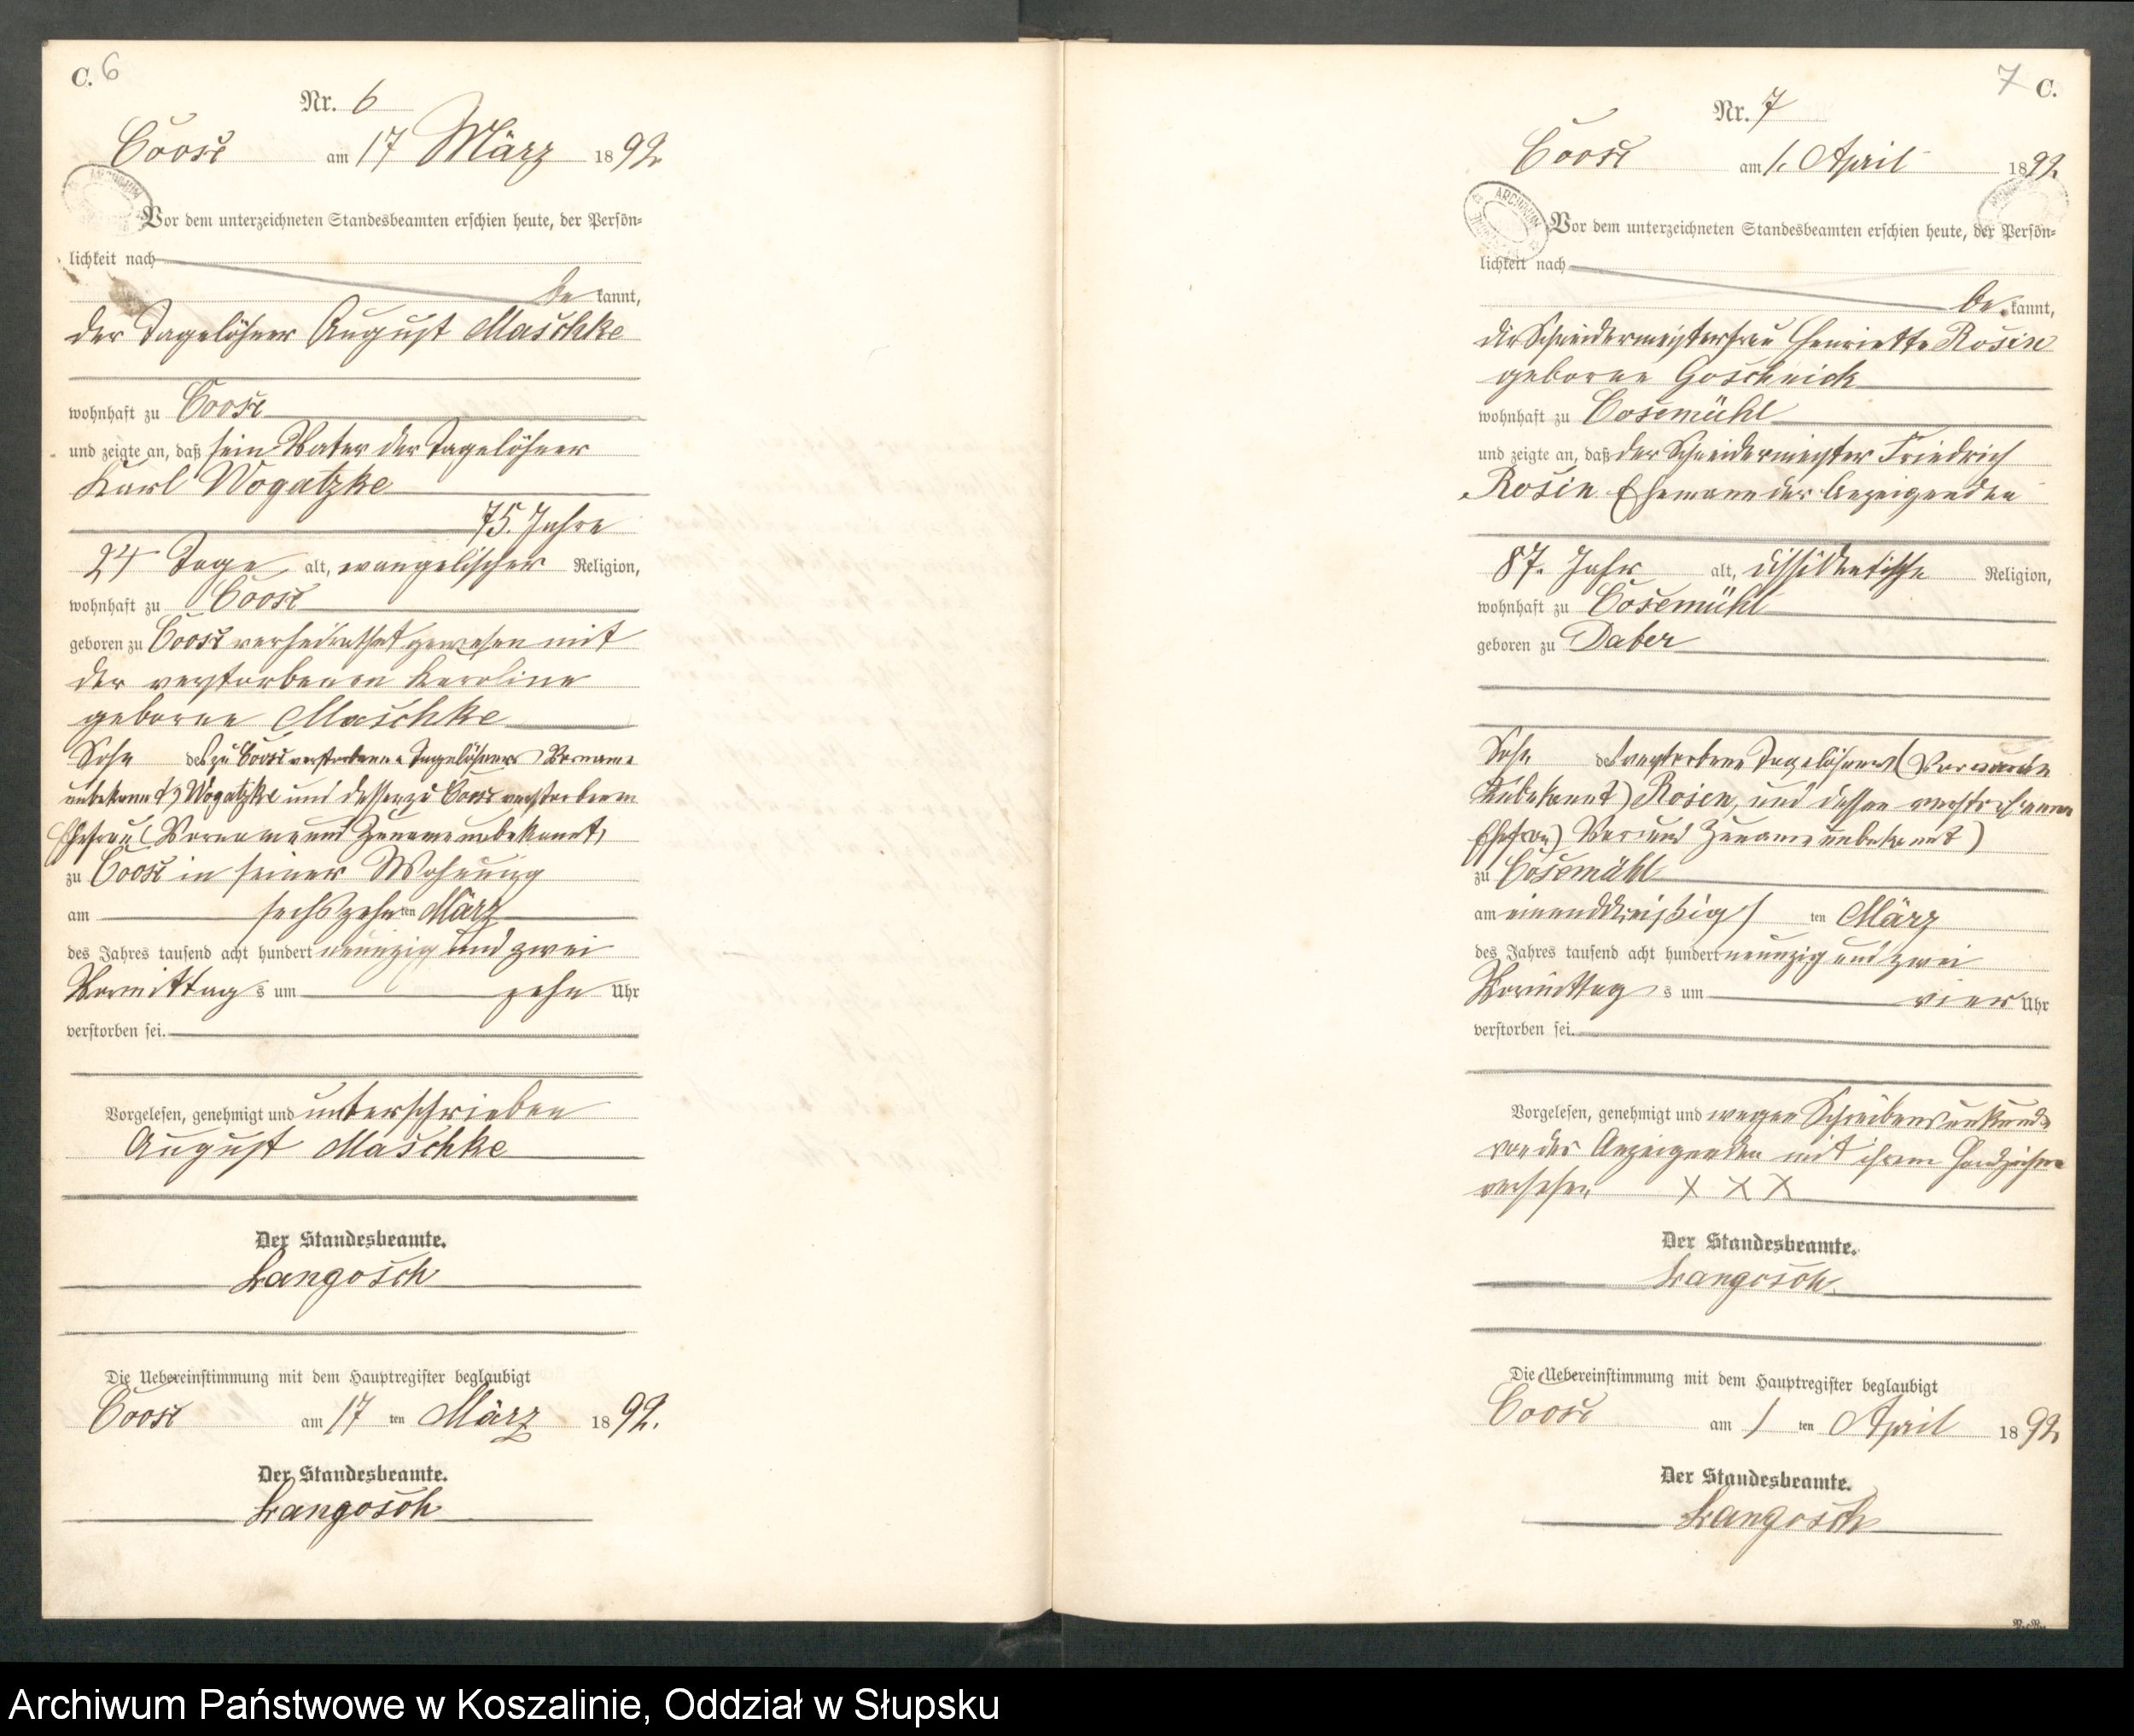 C. 6
Nr. 6
Coose am 17 März 1892
Vor dem unterzeichneten Standesbeamten erschien heute, der Persön=
lichkeit nach
be kannt,
der Tagelöhner August Maschke
wohnhaft zu Coose
und zeigte an, daß sein Vater der Tagelöhner
Karl Wogatzke
75. Jahre
24 Tage alt, evangelischer Religion,
wohnhaft zu Coose
geboren zu Coose verheirathet gewesen mit
der verstorbenen Karoline
geborne Maschke
Sohn des zu Coose verstorbenen Tagelöhners (Vorname
unbekannt) Wogatzke und dessen zu Coose verstorbenen
Ehefrau (Vorname und Zuname unbekannt)
zu Coose in seiner Wohnung
am sechszehn ten März
des Jahres tausend acht hundert neunzig und zwei
Vormittag s um zehn Uhr
verstorben sei.
Vorgelesen, genehmigt und unterschrieben
August Maschke
Der Standesbeamte.
Langosch
Die Uebereinstimmung mit dem Hauptregister beglaubigt
Coose am 17 ten März 1892.
Der Standesbeamte.
Langosch
7 C.
Nr. 7
Coose am 1. April 1892
ARCHIWUM
Vor dem unterzeichneten Standesbeamten erschien heute, der Persön=
lichkeit nach
be kannt,
die Schneidermeisterfrau Henriette Rosin
geborne Goschnick
wohnhaft zu Cosemühl
und zeigte an, daß der Schneidermeister Friedrich
Rosin Ehemann der Anzeigenden
87. Jahr alt, dissidentische Religion,
wohnhaft zu Cosemühl
geboren zu Daber
Sohn des verstorbenen Tagelöhners (Vorname
Unbekannt) Rosin, und dessen verstorbenen
Ehefrau) Vor und Zuname unbekannt)
zu Cosemühl
am einunddreißig s ten März
des Jahres tausend acht hundert neunzig und zwei
Vormittag s um vier Uhr
verstorben sei.
Vorgelesen, genehmigt und wegen Schreibensunkunde
von der Anzeigenden mit ihrem Handzeichen
versehen X X X
Der Standesbeamte.
Langosch.
Die Uebereinstimmung mit dem Hauptregister beglaubigt
Coose am 1 ten April 1892
Der Standesbeamte.
Langosch
Archiwum Państwowe w Koszalinie, Oddział w Słupsku